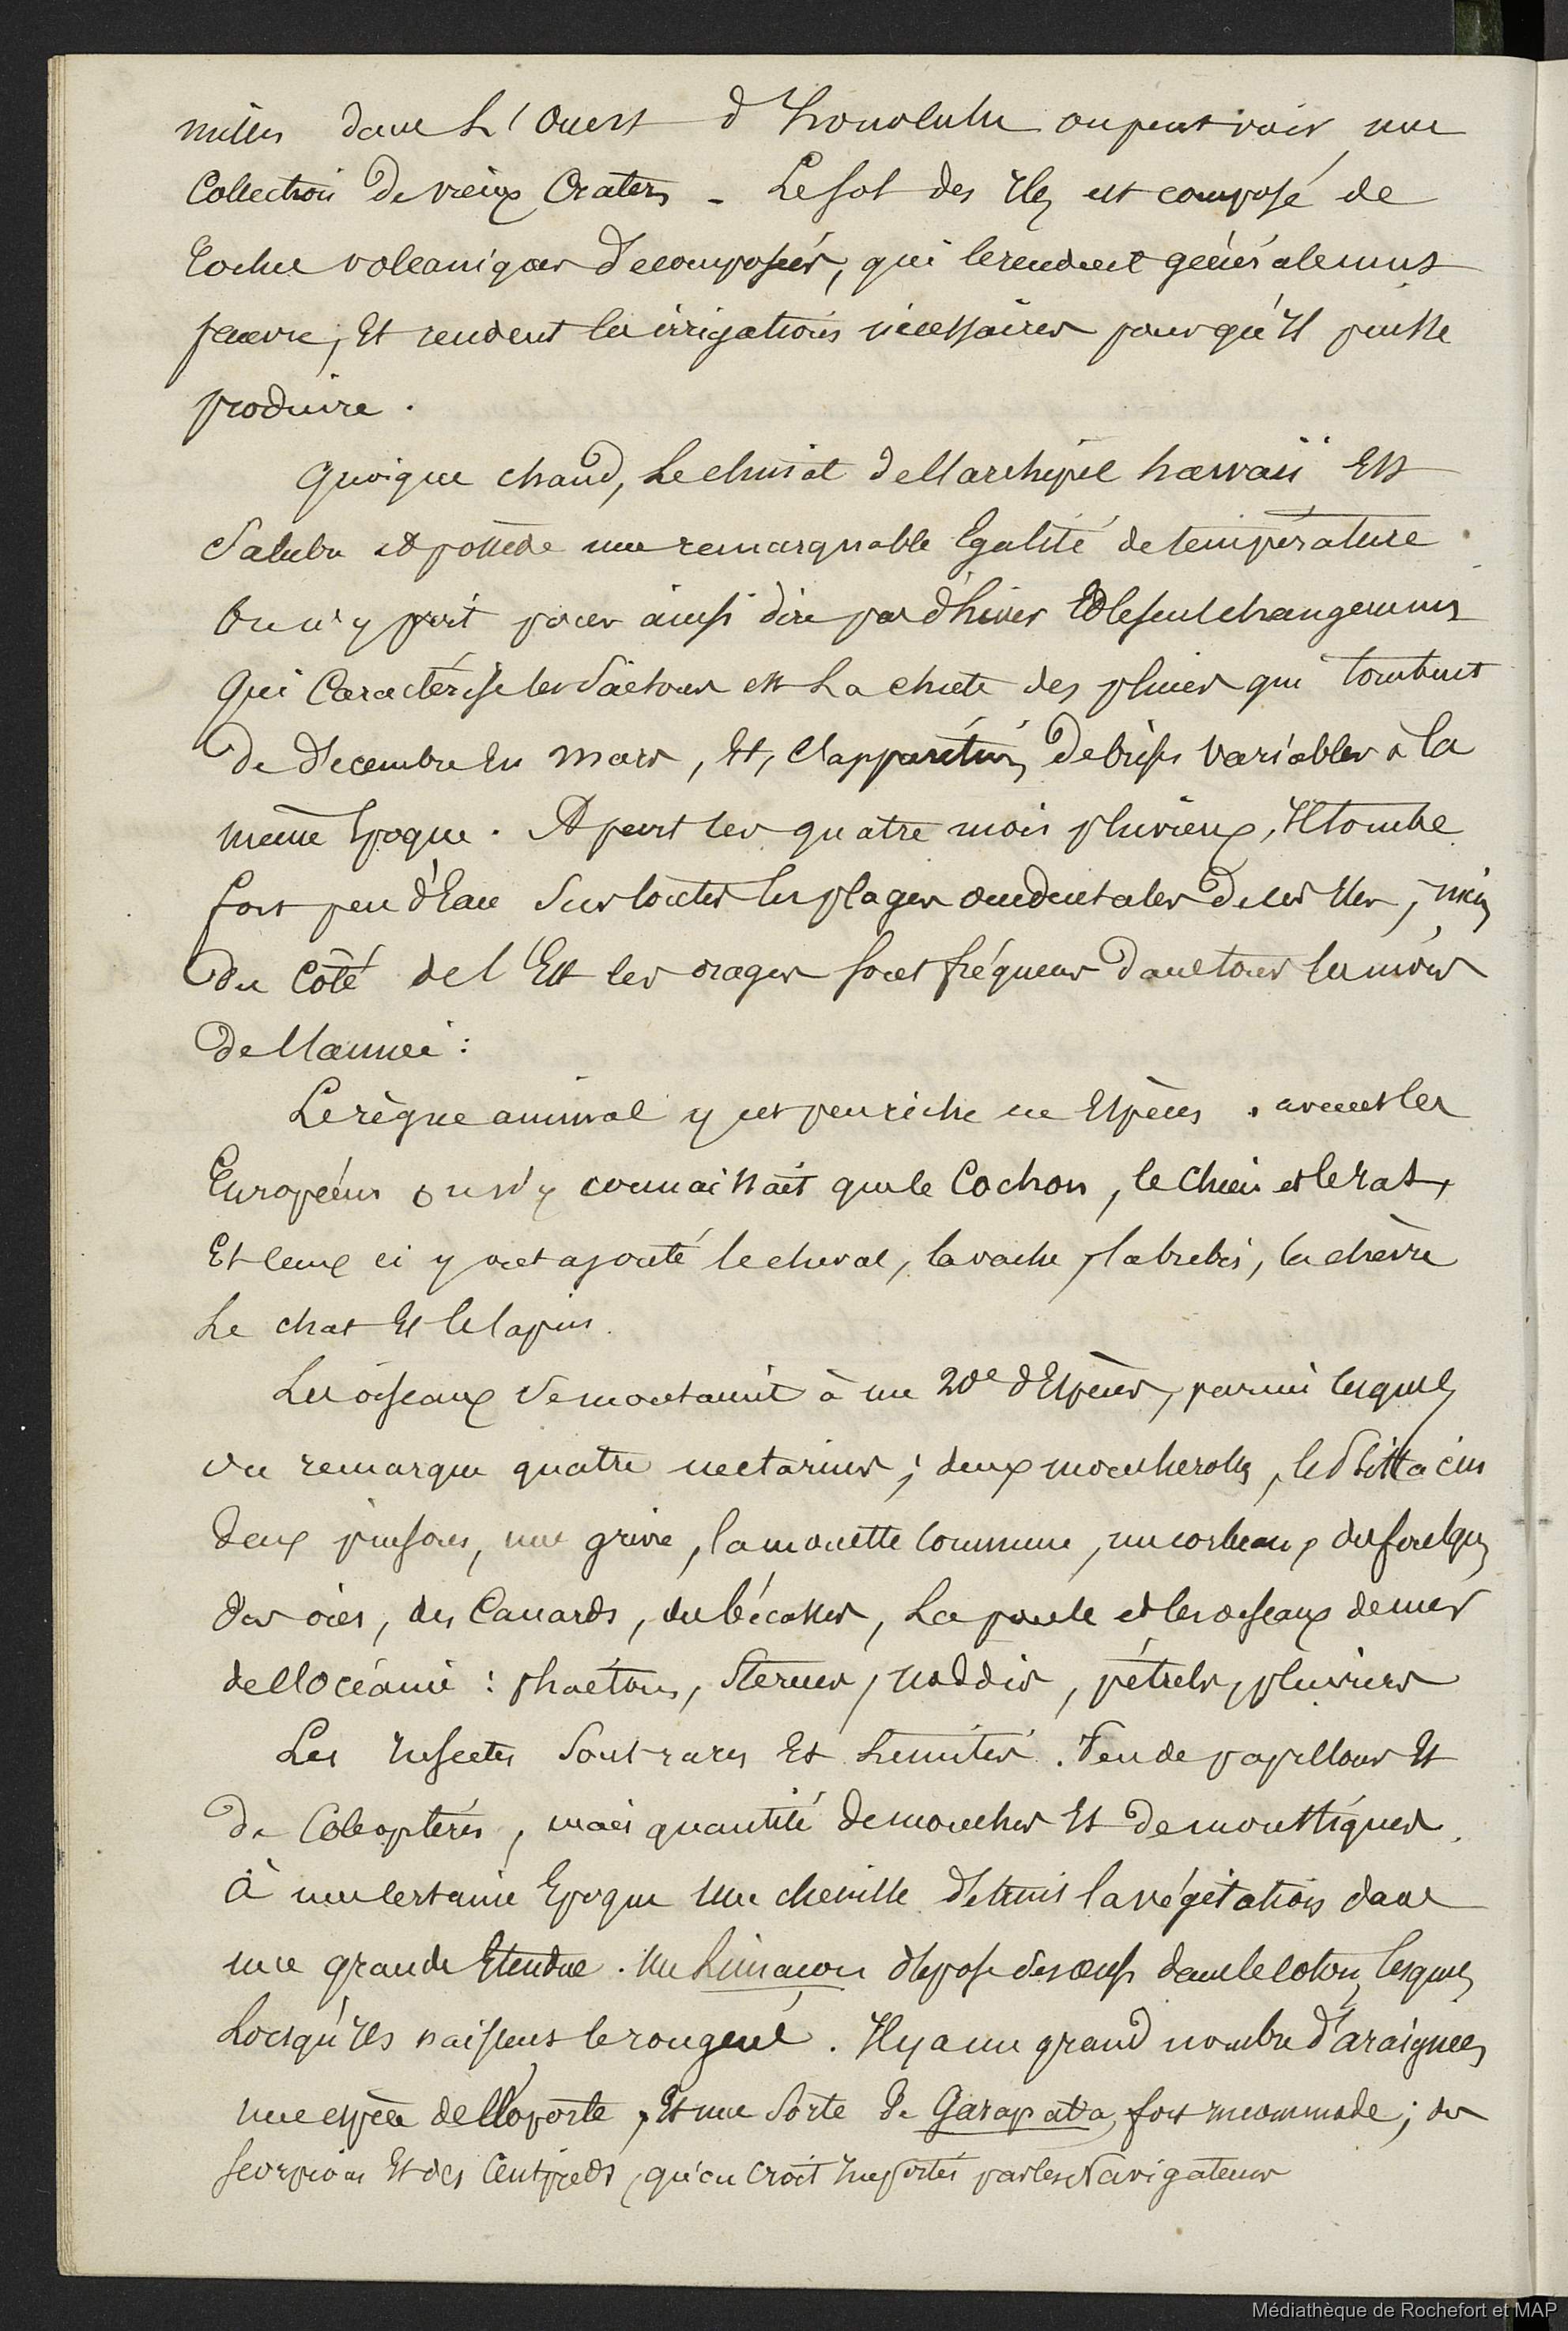 milles dans L'Ouest d'honolulu on peut voir une
Collection de vieux Craters - Le sol des Iles est composé de
Roches volcaniques décomposées, qui le rendent généralement
pauvre, Et rendent les irrigations nécessaires pour qu'Il puisse
produire.
Quoique chaud, Le climat de l'archipel hawaii Est
Salubre et possède une remarquable Egalité de température.
On n'y voit pour ainsi dire pas d'hiver Et le seul changement
Qui Caractérise les Saisons est La chute des pluies qui tombent
De Décembre En Mars, Et, l'apparition, de brises variables à la
même Epoque. A part les quatre mois pluvieux, Il tombe
fort peu d'Eau Sur toutes les plages occidentales de ces Iles, mais
Du Côté de l'Est les orages sont fréquens Dans tous les mois
de l'année :
Le règne animal y est peu riche en Espèces. avant les
Européens on n'y connaissait que le Cochon, le Chien et le rat,
Et ceux ci y ont ajouté le cheval, la vache, la brebis, la chèvre
Le chat Et le lapin.
Les oiseaux se montaient à une 20e d'Espèces, parmi lesquels
on remarque quatre nectarins ; deux moucherolles, le Psittacin
deux pinsons, une grive, la mouette commune, un corbeau, des foulques
des oies, des Canards, des bécasses, La poule et les oiseaux de mer
de l'Océanie : phaétons, Sternes, noddis, pétrels, pluviers
Les Insectes sont rares Et Limités. Peu de papillons Et
De Coléoptères, mais quantité de mouches Et de moustiques.
À une certaine Epoque Une chenille Détruit la végétation dans
une grande Etendue. Un Limaçon dépose ses œufs dans le coton, lesquels
Lorsqu'Ils naissent le rongent. Il y a un grand nombre d'araignées,
une espèce de cloporte, Et une sorte de Garapata, fort incommode ; des
scorpions Et des Centpieds, qu'on croit Importés par les Navigateurs
Médiathèque de Rochefort et MAP